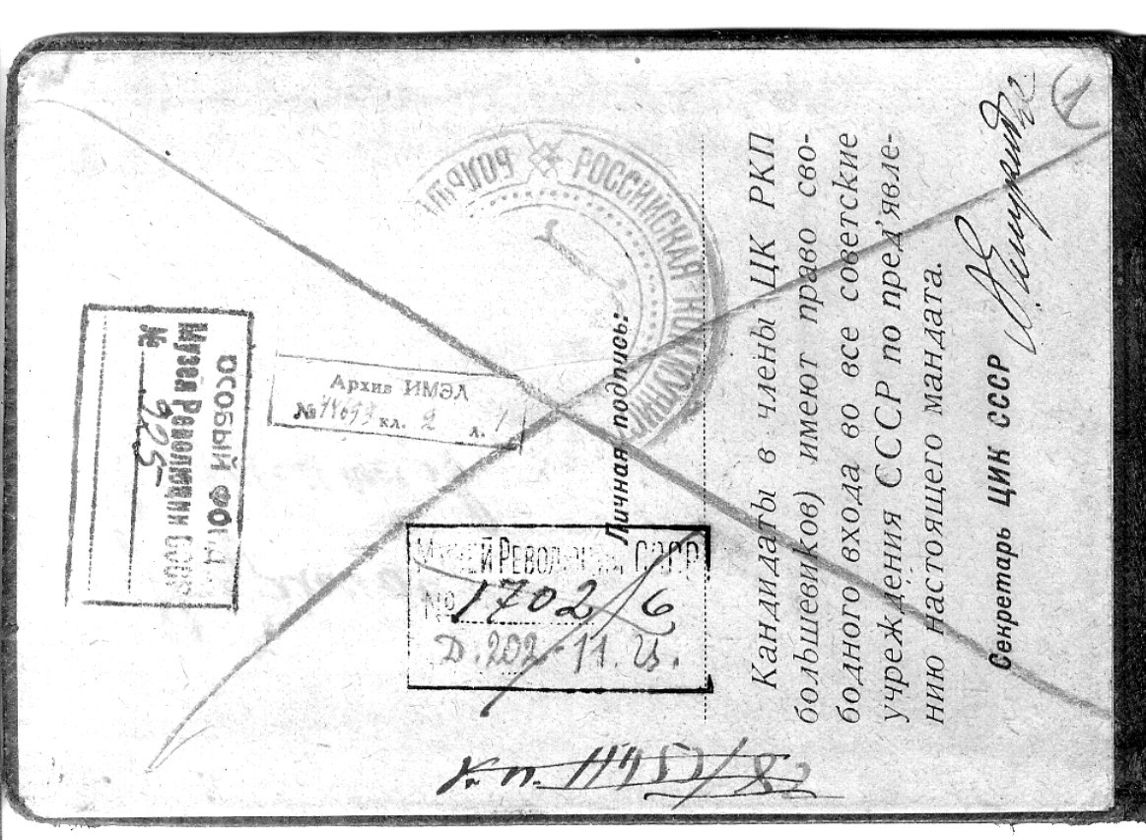 Личная подпись:
Кандидаты в члены ЦК РКП
большевиков) имеют право сво-
бодного входа во все советские
учреждения СССР по пред'явле-
нию настоящего мандата.
Секретарь ЦИК СССР
А. Енукидзе
1
РОССИЙСКАЯ КОММУНИС
МУЗЕЙ РЕВОЛЮЦИИ СССР
№ 1702/6
Д. 202-11. и.
Архив ИМЭЛ
№ кл. 2 л. 1
ОСОБЫЙ ФОНД
Музея Революции СССР
№ 925